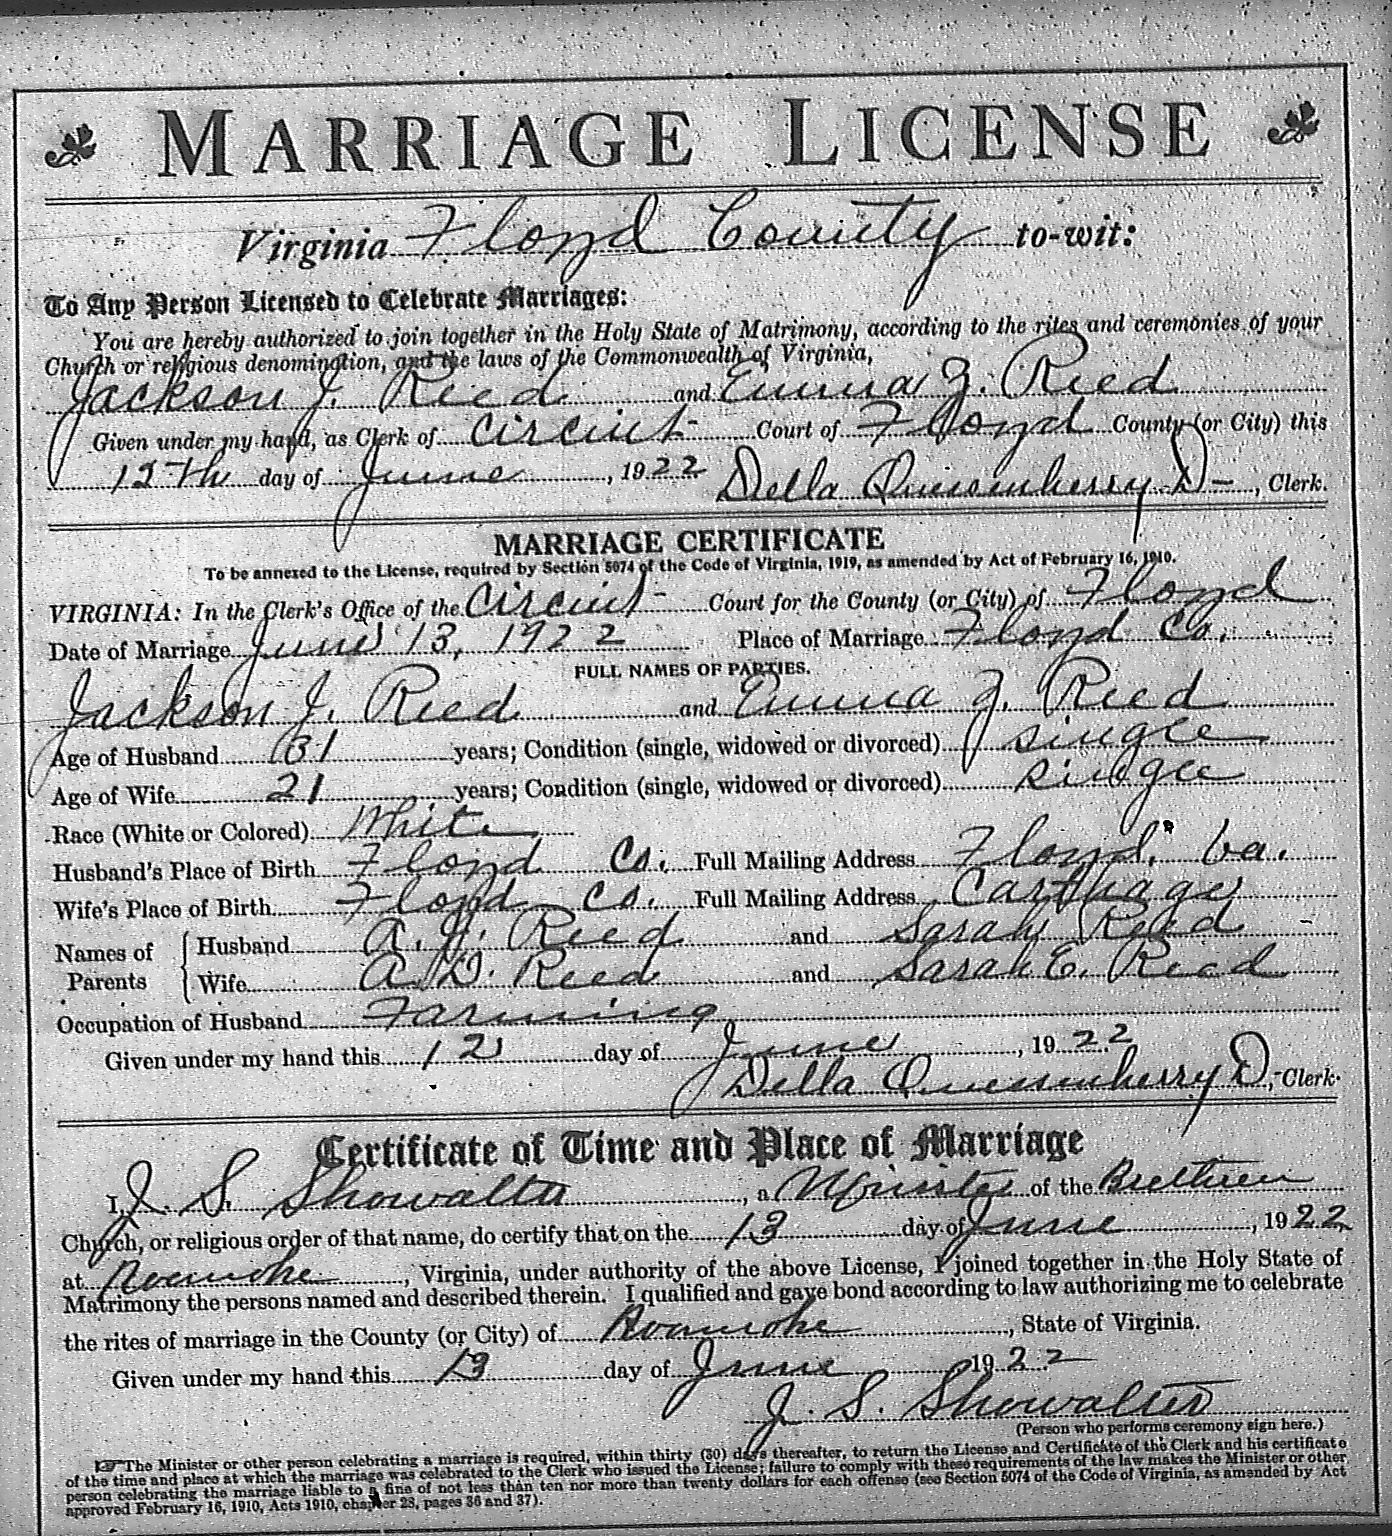 MARRIAGE LICENSE
Virginia Floyd County to-wit:
To Any Person Licensed to Celebrate Marriages:
You are hereby authorized to join together in the Holy State of Matrimony, according to the rites and ceremonies of your
Church or religious denomination, and the laws of the Commonwealth of Virginia,
Jackson J. Reed and Emma J. Reed
Given under my hand, as Clerk of Circuit Court of Floyd County (or City) this
12th day of June, 1922 Della Quesenberry D-, Clerk.
MARRIAGE CERTIFICATE
To be annexed to the License, required by Section 5074 of the Code of Virginia, 1919, as amended by Act of February 16, 1910.
VIRGINIA: In the Clerk's Office of the Circuit- Court for the County (or City) of Floyd
Date of Marriage June 13, 1922 Place of Marriage Floyd Co.
FULL NAMES OF PARTIES.
Jackson J. Reed and Emma J. Reed
Age of Husband 31 years; Condition (single, widowed or divorced) single
Age of Wife 21 years; Condition (single, widowed or divorced) single
Race (White or Colored) White
Husband's Place of Birth Floyd Co. Full Mailing Address Floyd, Va.
Wife's Place of Birth Floyd Co. Full Mailing Address Carthage
Names of Parents Husband A. J. Reed and Sarah Reed
Wife A. D. Reed and Sarah E. Reed
Occupation of Husband Farming
Given under my hand this 12 day of June, 1922
Della Quesenberry D, Clerk.
Certificate of Time and Place of Marriage
I, J. S. Showalter, a Minister of the Brethren
Church, or religious order of that name, do certify that on the 13 day of June, 1922
at Roanoke, Virginia, under authority of the above License, I joined together in the Holy State of
Matrimony the persons named and described therein. I qualified and gave bond according to law authorizing me to celebrate
the rites of marriage in the County (or City) of Roanoke, State of Virginia.
Given under my hand this 13 day of June 1922
J. S. Showalter
(Person who performs ceremony sign here.)
☞ The Minister or other person celebrating a marriage is required, within thirty (30) days thereafter, to return the License and Certificate of the Clerk and his certificate
of the time and place at which the marriage was celebrated to the Clerk who issued the License; failure to comply with these requirements of the law makes the Minister or other
person celebrating the marriage liable to a fine of not less than ten nor more than twenty dollars for each offense (see Section 5074 of the Code of Virginia, as amended by Act
approved February 16, 1910, Acts 1910, chapter 28, pages 36 and 37).